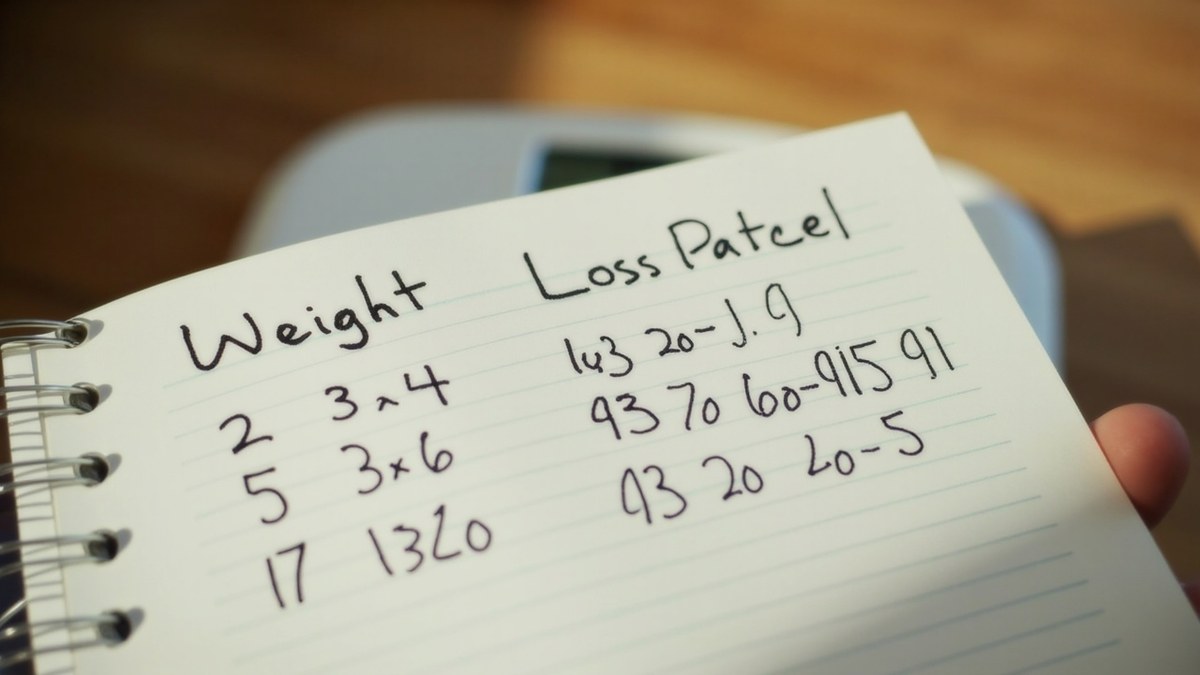 Weight Loss Patcel
2 3×4 143 20-J. 9
5 3×6 93 70 60-915 91
17 1320 93 20 20-5